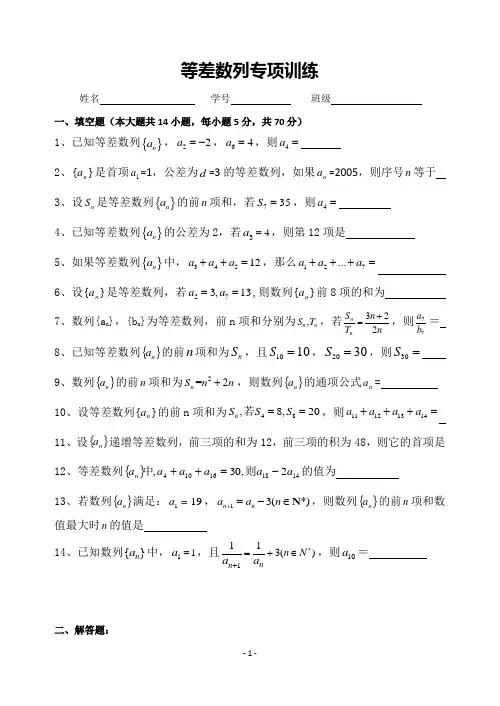 等差数列专项训练
姓名 学号 班级
一、填空题（本大题共14小题，每小题5分，共70分）
1、已知等差数列{aₙ}，a₂ = −2，a₆ = 4，则a₄ =
2、{aₙ}是首项a₁=1，公差为d=3的等差数列，如果aₙ=2005，则序号n等于
3、设Sₙ是等差数列{aₙ}的前n项和，若S₇ = 35，则a₄ =
4、已知等差数列{aₙ}的公差为2，若a₃ = 4，则第12项是
5、如果等差数列{aₙ}中，a₃ + a₄ + a₅ = 12，那么a₁ + a₂ + ... + a₇ =
6、设{aₙ}是等差数列，若a₂ = 3, a₇ = 13, 则数列{aₙ}前8项的和为
7、数列{aₙ}，{bₙ}为等差数列，前n项和分别为Sₙ,Tₙ，若Sₙ/Tₙ = (3n + 2)/2n，则a₇/b₇ =
8、已知等差数列{aₙ}的前n项和为Sₙ，且S₁₀ = 10，S₂₀ = 30，则S₃₀ =
9、数列{aₙ}的前n项和为Sₙ=n² + 2n，则数列{aₙ}的通项公式aₙ=
10、设等差数列{aₙ}的前n项和为Sₙ, 若S₄ = 8, S₈ = 20，则a₁₁ + a₁₂ + a₁₃ + a₁₄ =
11、设{aₙ}递增等差数列，前三项的和为12，前三项的积为48，则它的首项是
12、等差数列{aₙ}中, a₄ + a₁₀ + a₁₆ = 30, 则a₁₈ − 2a₁₄的值为
13、若数列{aₙ}满足：a₁ = 19，aₙ₊₁ = aₙ − 3(n ∈ N*)，则数列{aₙ}的前n项和数
值最大时n的值是
14、已知数列{aₙ}中，a₁=1，且1/aₙ₊₁ = 1/aₙ + 3(n ∈ N*)，则a₁₀ =
二、解答题：
- 1 -